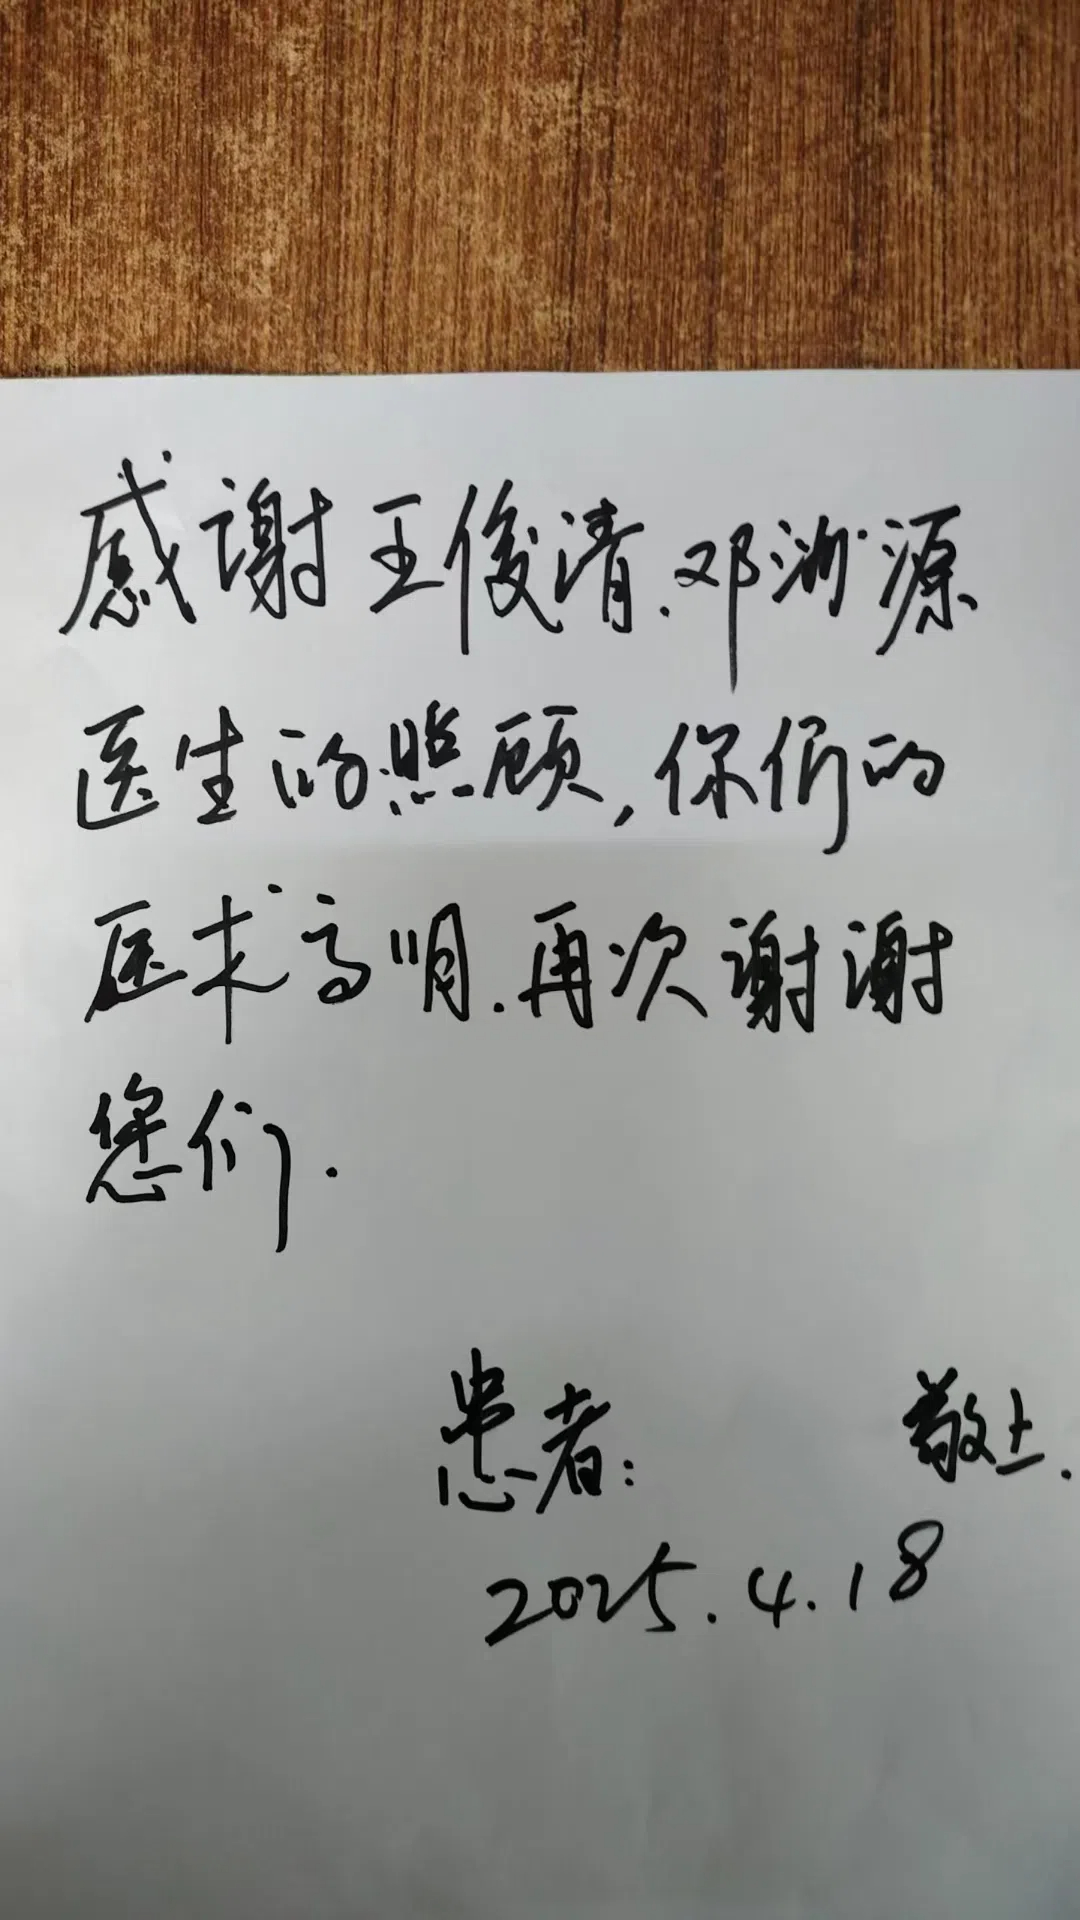 感谢王俊清.邓浙源
医生的照顾,你们的
医术高明.再次谢谢
您们.
患者: 敬上.
2025.4.18